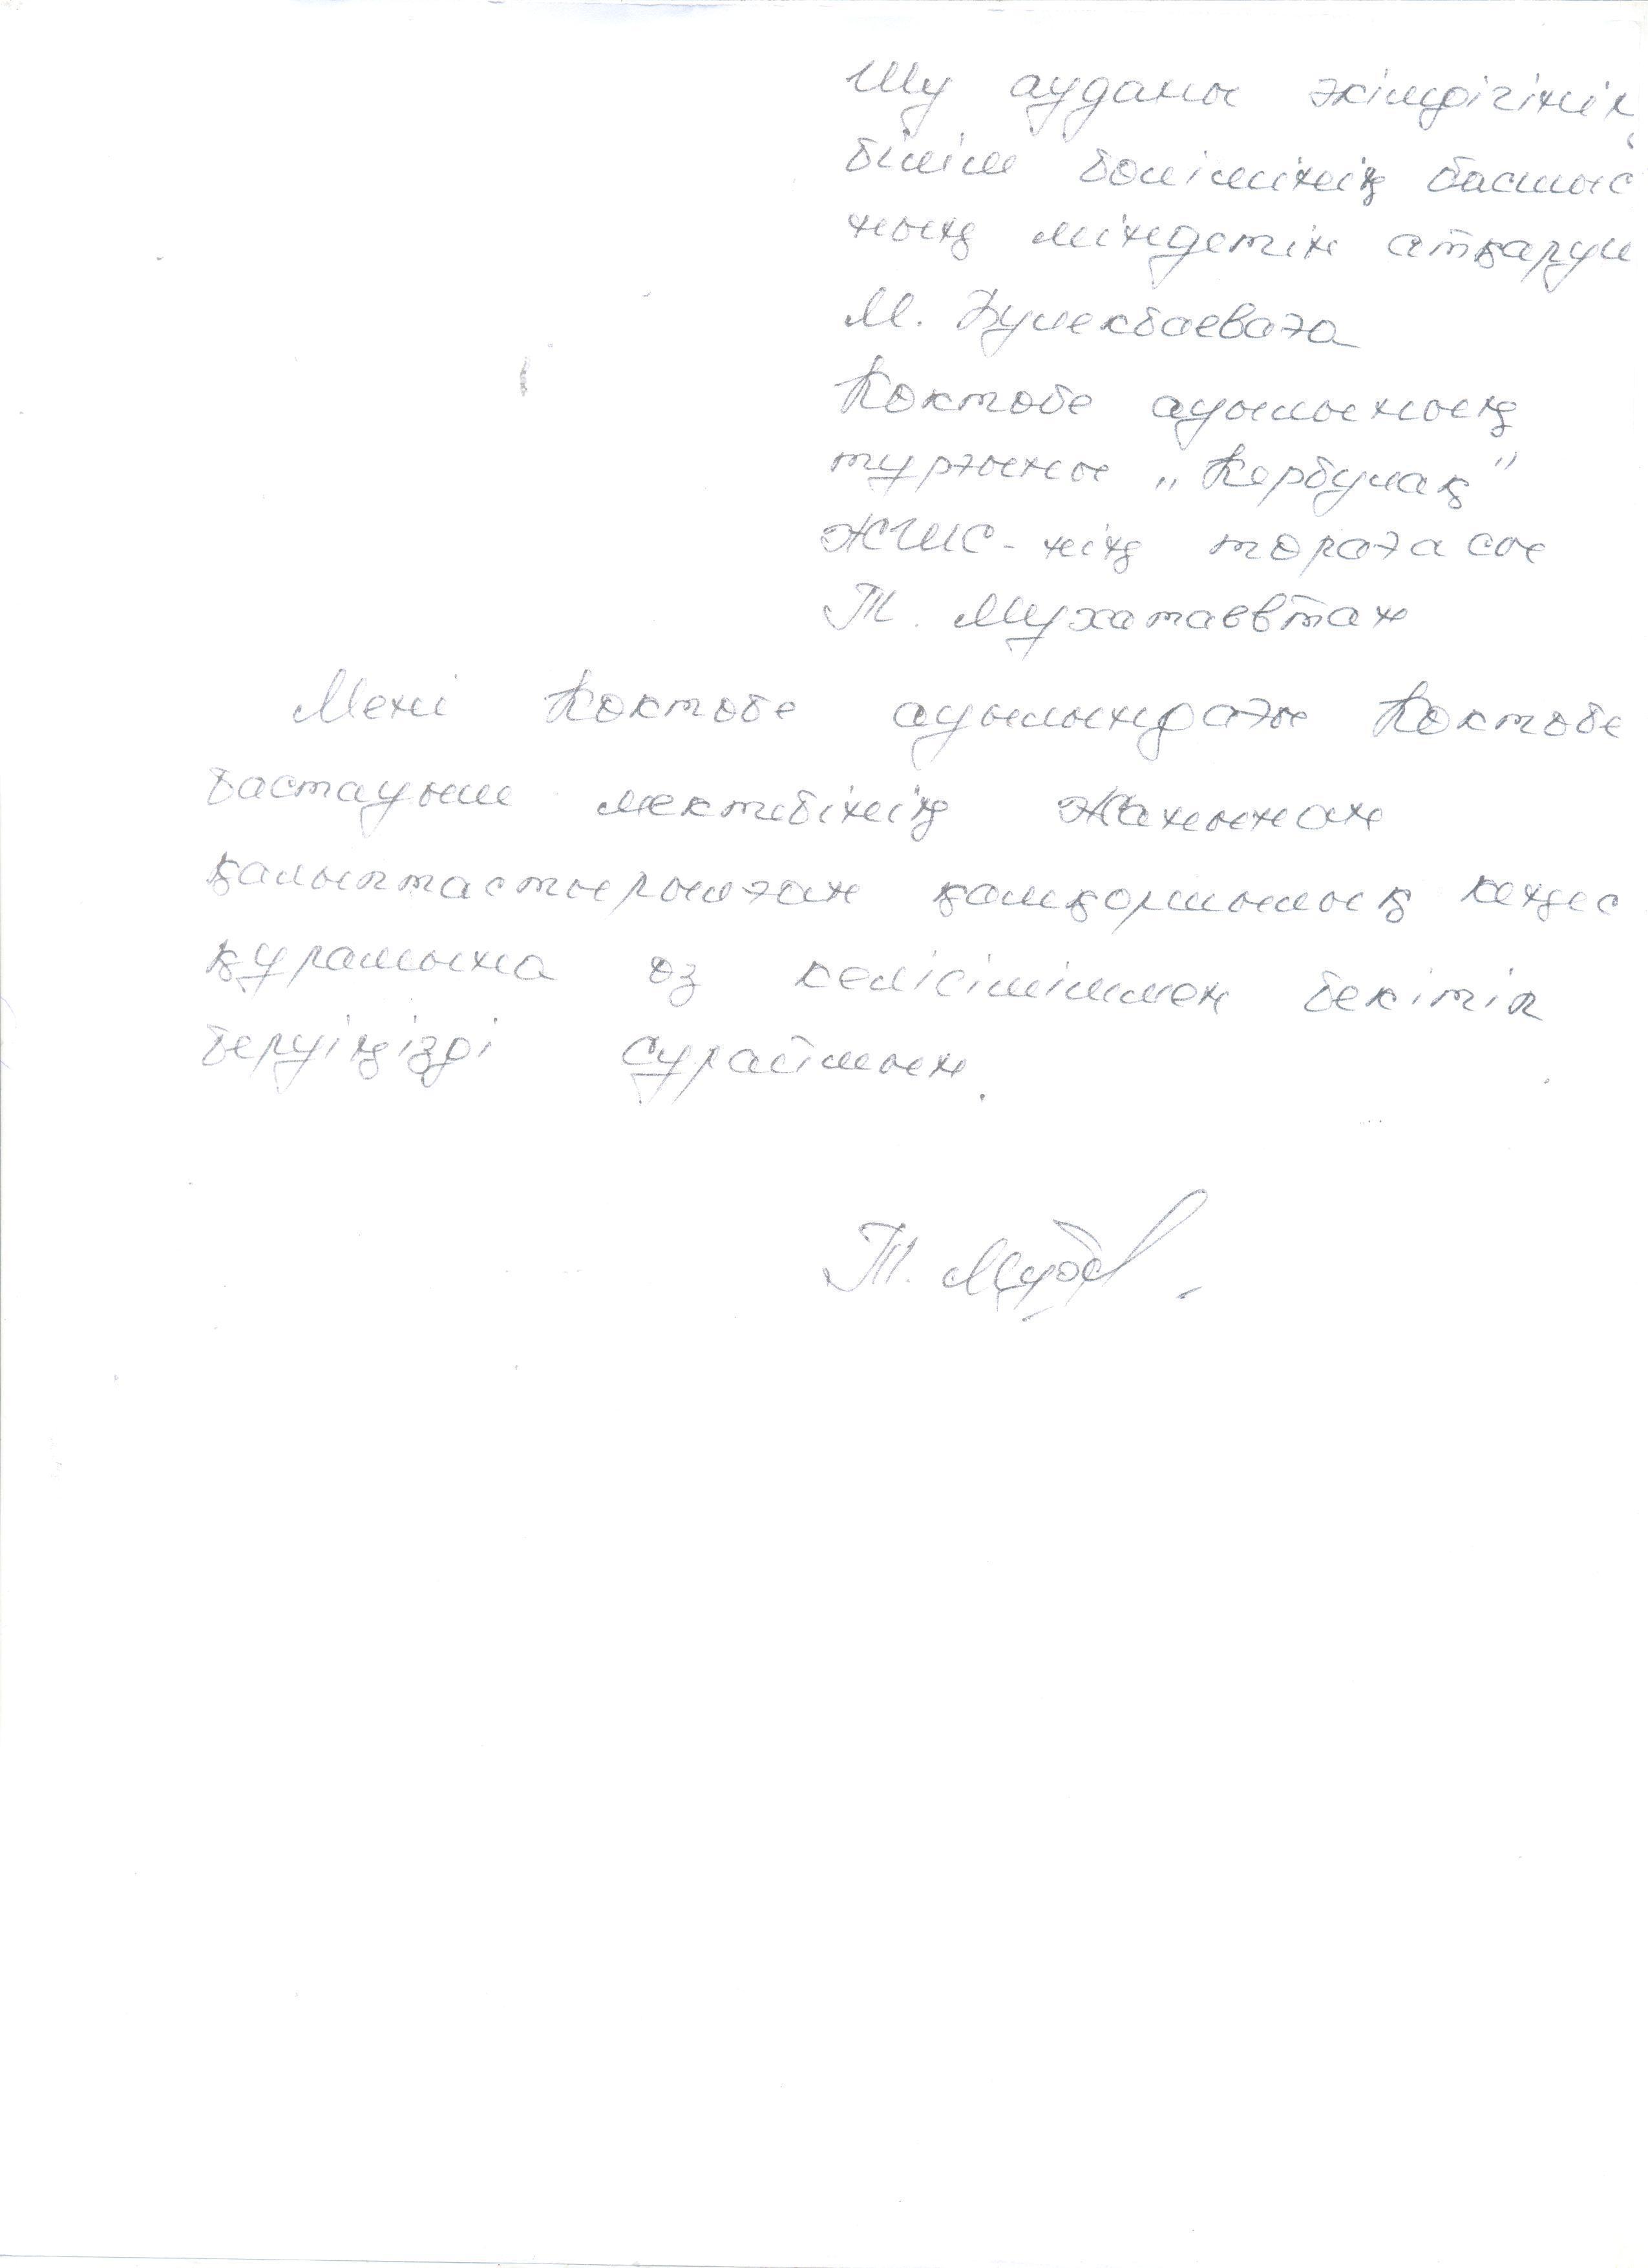 Шу ауданы әкімдігінің
білім бөлімінің басшыс
ның міндетін атқаруш
М. Дулекбаеваға
Көктөбе ауылының
тұрғыны „Қарбулақ"
ЖШС-нің төрағасы
Т. Мухатаевтан
Мені Көктөбе ауылындағы Көктөбе
бастауыш мектебінің жанынан
қалыптастырылған қамқоршылық кеңес
құрамына өз келісіміммен бекітіп
беруіңізді сұраймын.